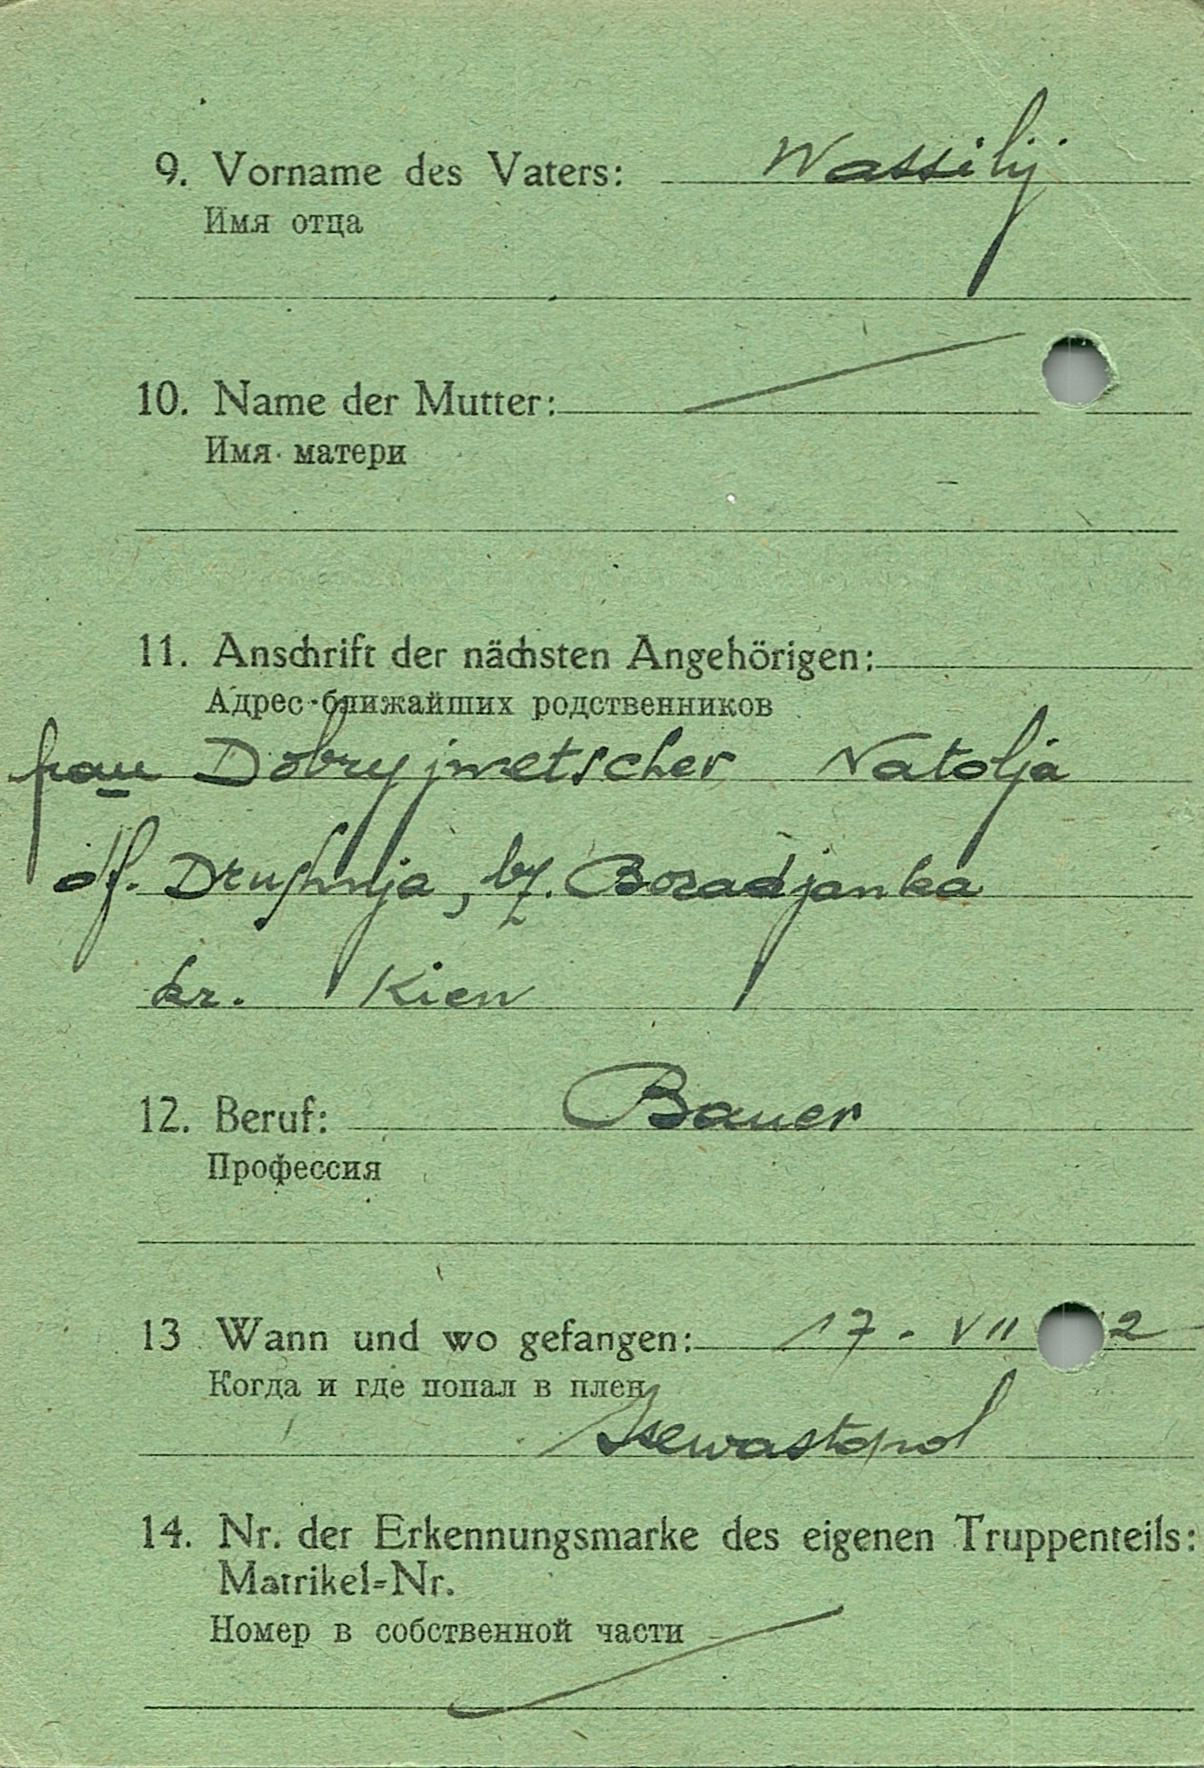 9. Vorname des Vaters: Wassilij
Имя отца
10. Name der Mutter:
Имя матери
11. Anschrift der nächsten Angehörigen:
Адрес ближайших родственников
frau Dobryjwetscher Natolja
df. Drushnja, bz. Boradjanka
kr. Kiew
12. Beruf: Bauer
Профессия
13 Wann und wo gefangen: 17. VII 2
Когда и где попал в плен
Ssewastopol
14. Nr. der Erkennungsmarke des eigenen Truppenteils:
Matrikel-Nr.
Номер в собственной части